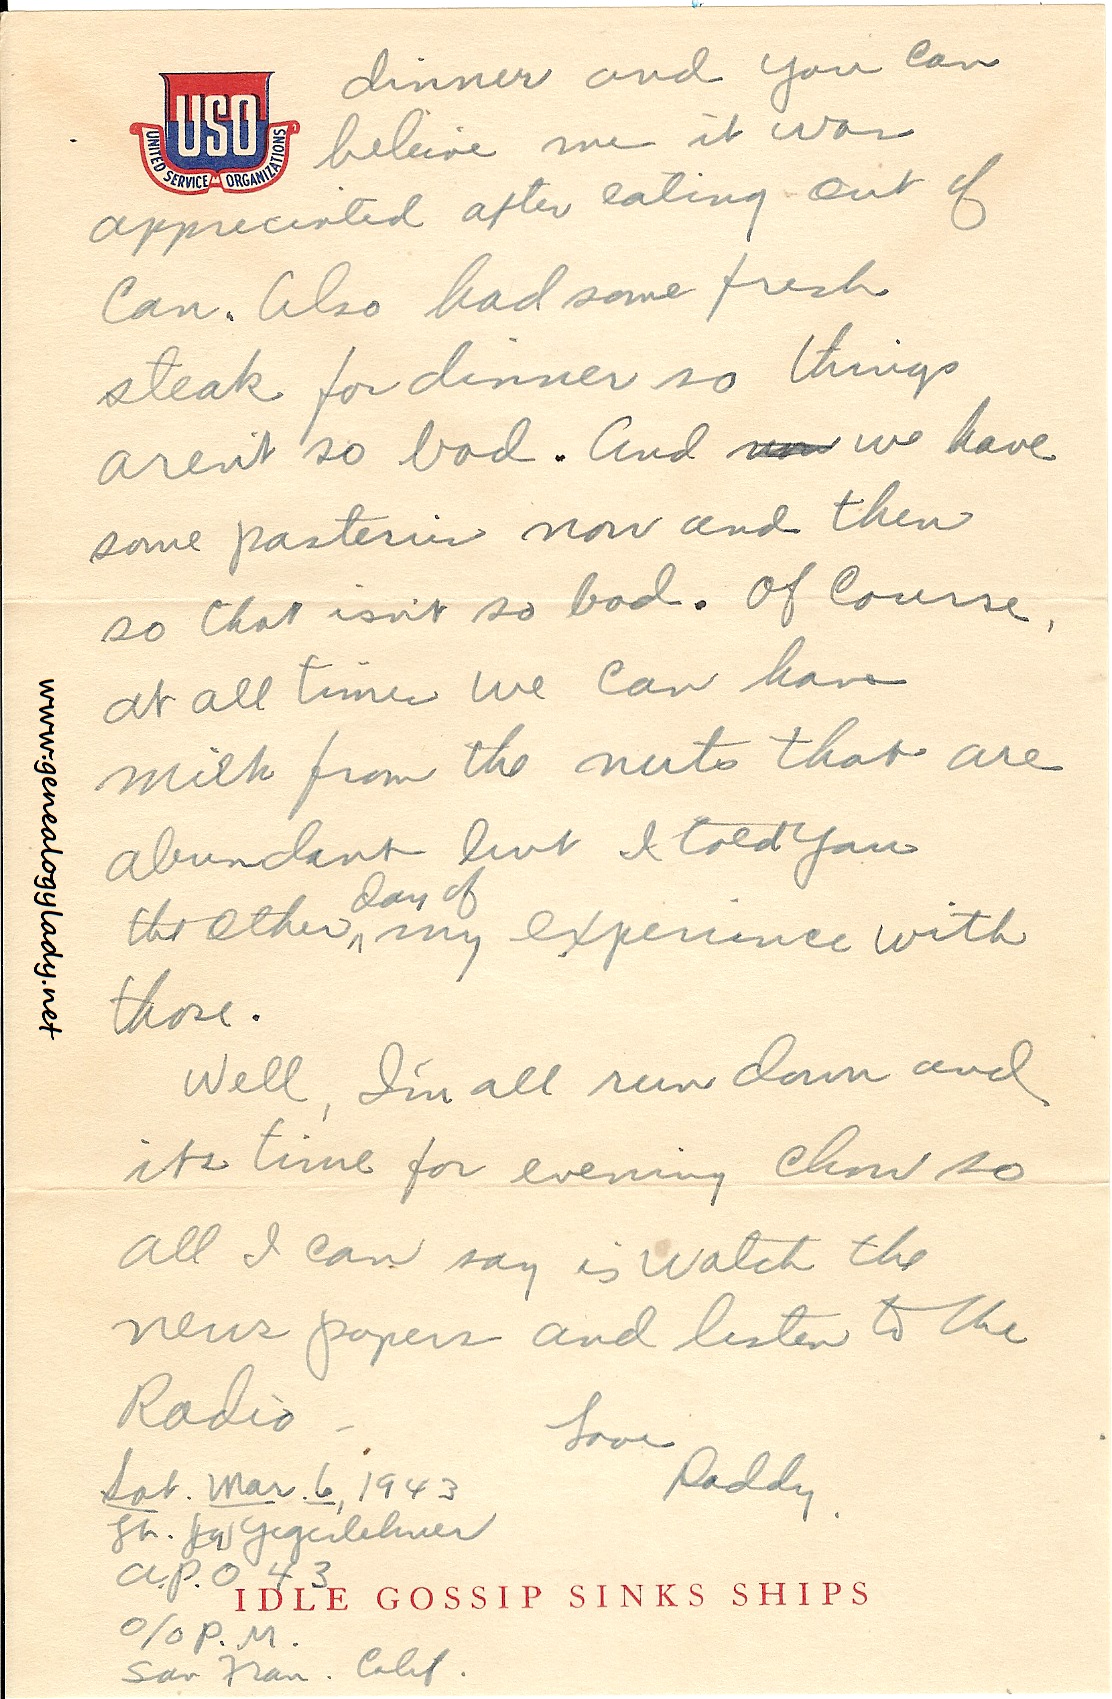 USO
UNITED SERVICE ORGANIZATIONS
dinner and you can
beleive me it was
appreciated after eating out of
Can. Also had some fresh
steak for dinner so things
aren't so bad. And now we have
some pasteries now and then
so that isn't so bad. Of Course,
at all times we can have
milk from the nuts that are
abundant but I told you
day of
the other my experience with
those.
Well, I'm all run down and
its time for evening chow so
all I can say is watch the
news papers and listen to the
Radio –
Love
Roddy
Sat. Mar. 6, 1943
Lt. Yegerlehner
A.P.O 43
IDLE GOSSIP SINKS SHIPS
c/o P.M.
San Fran. Calif.
www.genealogylady.net